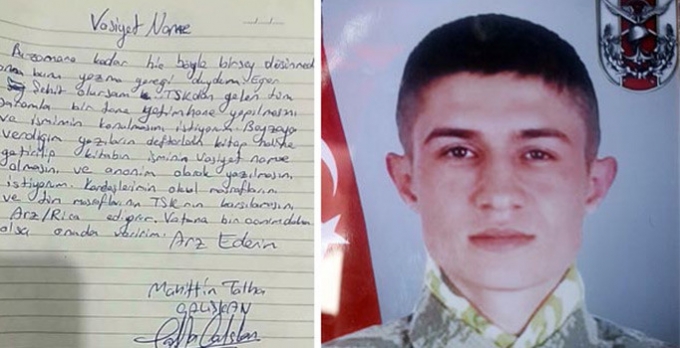 Vasiyet Name
Bu zamana kadar hiç böyle birşey düşünmedim
ama bunu yazma gereği duydum. Eğer
Şehit olursam TSK'dan gelen tüm
paramla bir tane yetimhane yapılmasını
ve ismimin konulmasını istiyorum. Beyzaya
verdiğim yazıların defterlerden kitap haline
getirilip kitabın isminin vasiyet name
olmasını ve anonim olarak yazılmasını
istiyorum. Kardeşlerimin okul masraflarını
ve tüm masraflarını TSK'nın karşılamasını
Arz/Rica ediyorum. Vatana bin canım daha
olsa onuda veririm. Arz Ederim
Muhittin Talha
ÇALIŞKAN